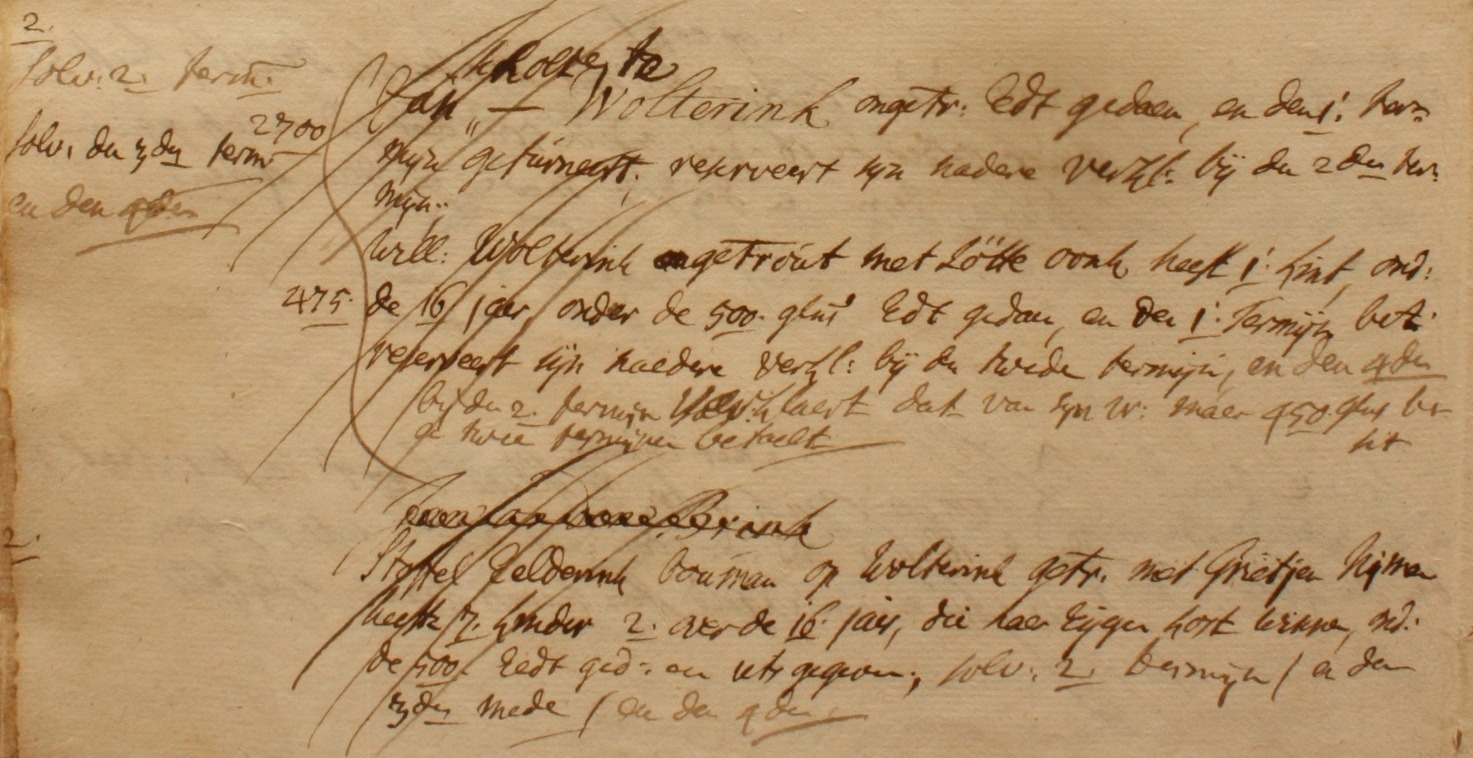 2.
solv: 2. term:
2700
solv. den 3den term:
en den 4den
scholte, te
Jan — Wolterink ongetr: Edt gedaen, en den 1: ter=
mijn geturneert. reserveert sijn nadere verkl: bij den 2den ter:
mijn..
Will: Wolterink getrout met Lötte oonk heeft 1: kint, ond:
475. de 16 jaer, onder de 500. glns Edt gedaen, en den 1: Termijn bet:
reserveert sijn naedere verkl: bij den twede termijn, en den 4den
bij den 2. termijn verklaert dat van sijn w: maer 450 glns be=
sit
de twee termijnen betaelt
Brink
2.
Stoffel Gelderink bouman op Wolterink getr. met Grietjen Nijman
heeft 7. kinder 2. over de 16 jaer, die haer Eijgen kost winnen, ond:
de 500. Eedt ged: en utgegeven, solv: 2. termijn / en den
3den mede / en den 4den.